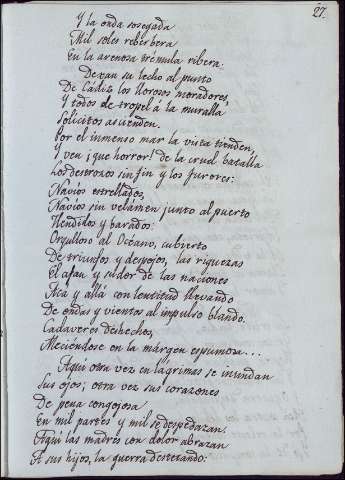 27.
Y la onda sosegada
Mil soles reberbera
En la arenosa trémula ribera.
Dexan su lecho al punto
De Cádiz los llorosos moradores,
Y todos de tropel á la muralla
Solicitos ascienden.
Por el inmenso mar la vista tienden,
Y ven ¡que horror! de la cruel batalla
Los destrozos sin fin y los furores:
Navios estrellados,
Navios sin velámen junto al puerto
Hendidos y barados:
Orgulloso al Océano, cubierto
De triunfos y despojos, las riquezas
El afan y sudor de las naciones
Acá y allá con lentitud llevando
De ondas y vientos al impulso blando.
Cadaveres deshechos,
Meciéndose en la márgen espumosa...
Aqui otra vez en lágrimas se inundan
Sus ojos; otra vez sus corazones
De pena congojosa
En mil partes y mil se despedazan.
Aqui las madres con dolor abrazan
A sus hijos, la guerra detestando: